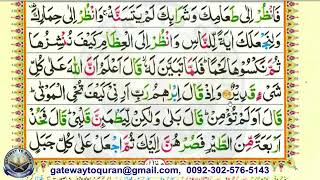 فَانْظُرْ اِلٰى طَعَامِكَ وَشَرَابِكَ لَمْ يَتَسَنَّهْ ۚ وَانْظُرْ اِلٰى حِمَارِكَ
وَلِنَجْعَلَكَ اٰيَةً لِّلنَّاسِ وَانْظُرْ اِلَى الْعِظَامِ كَيْفَ نُنْشِزُهَا
ثُمَّ نَكْسُوْهَا لَحْمًا ؕ فَلَمَّا تَبَيَّنَ لَهٗ ۙ قَالَ اَعْلَمُ اَنَّ اللّٰهَ عَلٰى كُلِّ
شَیْءٍ قَدِيْرٌ وَاِذْ قَالَ اِبْرٰهٖمُ رَبِّ اَرِنِیْ كَيْفَ تُحْیِ الْمَوْتٰى ؕ
قَالَ اَوَلَمْ تُؤْمِنْ ؕ قَالَ بَلٰى وَلٰكِنْ لِّيَطْمَئِنَّ قَلْبِیْ ؕ قَالَ فَخُذْ
اَرْبَعَةً مِّنَ الطَّيْرِ فَصُرْهُنَّ اِلَيْكَ ثُمَّ اجْعَلْ عَلٰى كُلِّ جَبَلٍ
gatewaytoquran@gmail.com, 0092-302-576-5143